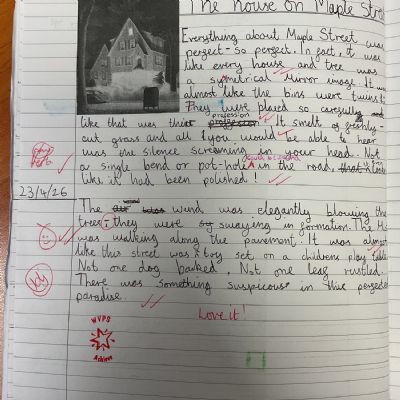 The House on Maple Stre
Everything about Maple Street was
perfect - so perfect. In fact, it was
like every house and tree was
a symetrical mirror image. It was
almost like the bins were twins!
They were placed so carefully
profession
like that was their It smelt of freshly-
cut grass and all you would be able to hear
was the silence screaming in your head. Not
a single bend or pot-hole in the road,
like it had been polished!
23/4/26
The wind was elegantly blowing the
trees; they were swaying in formation. The
was walking along the pavement. It was almost
like this street was a toy set on a childrens play table
Not one dog barked, Not one leaf rustled.
There was something suspicious in this perfect
paradise.
Love it!
WVPS
Achieve